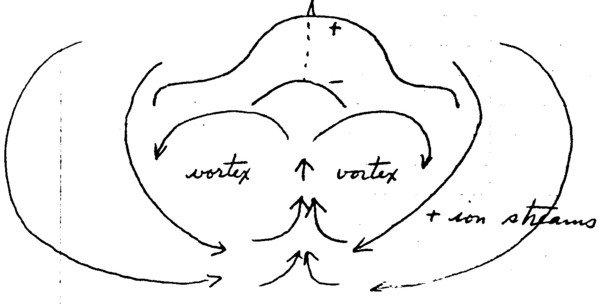 +
−
vortex vortex
+ ion streams